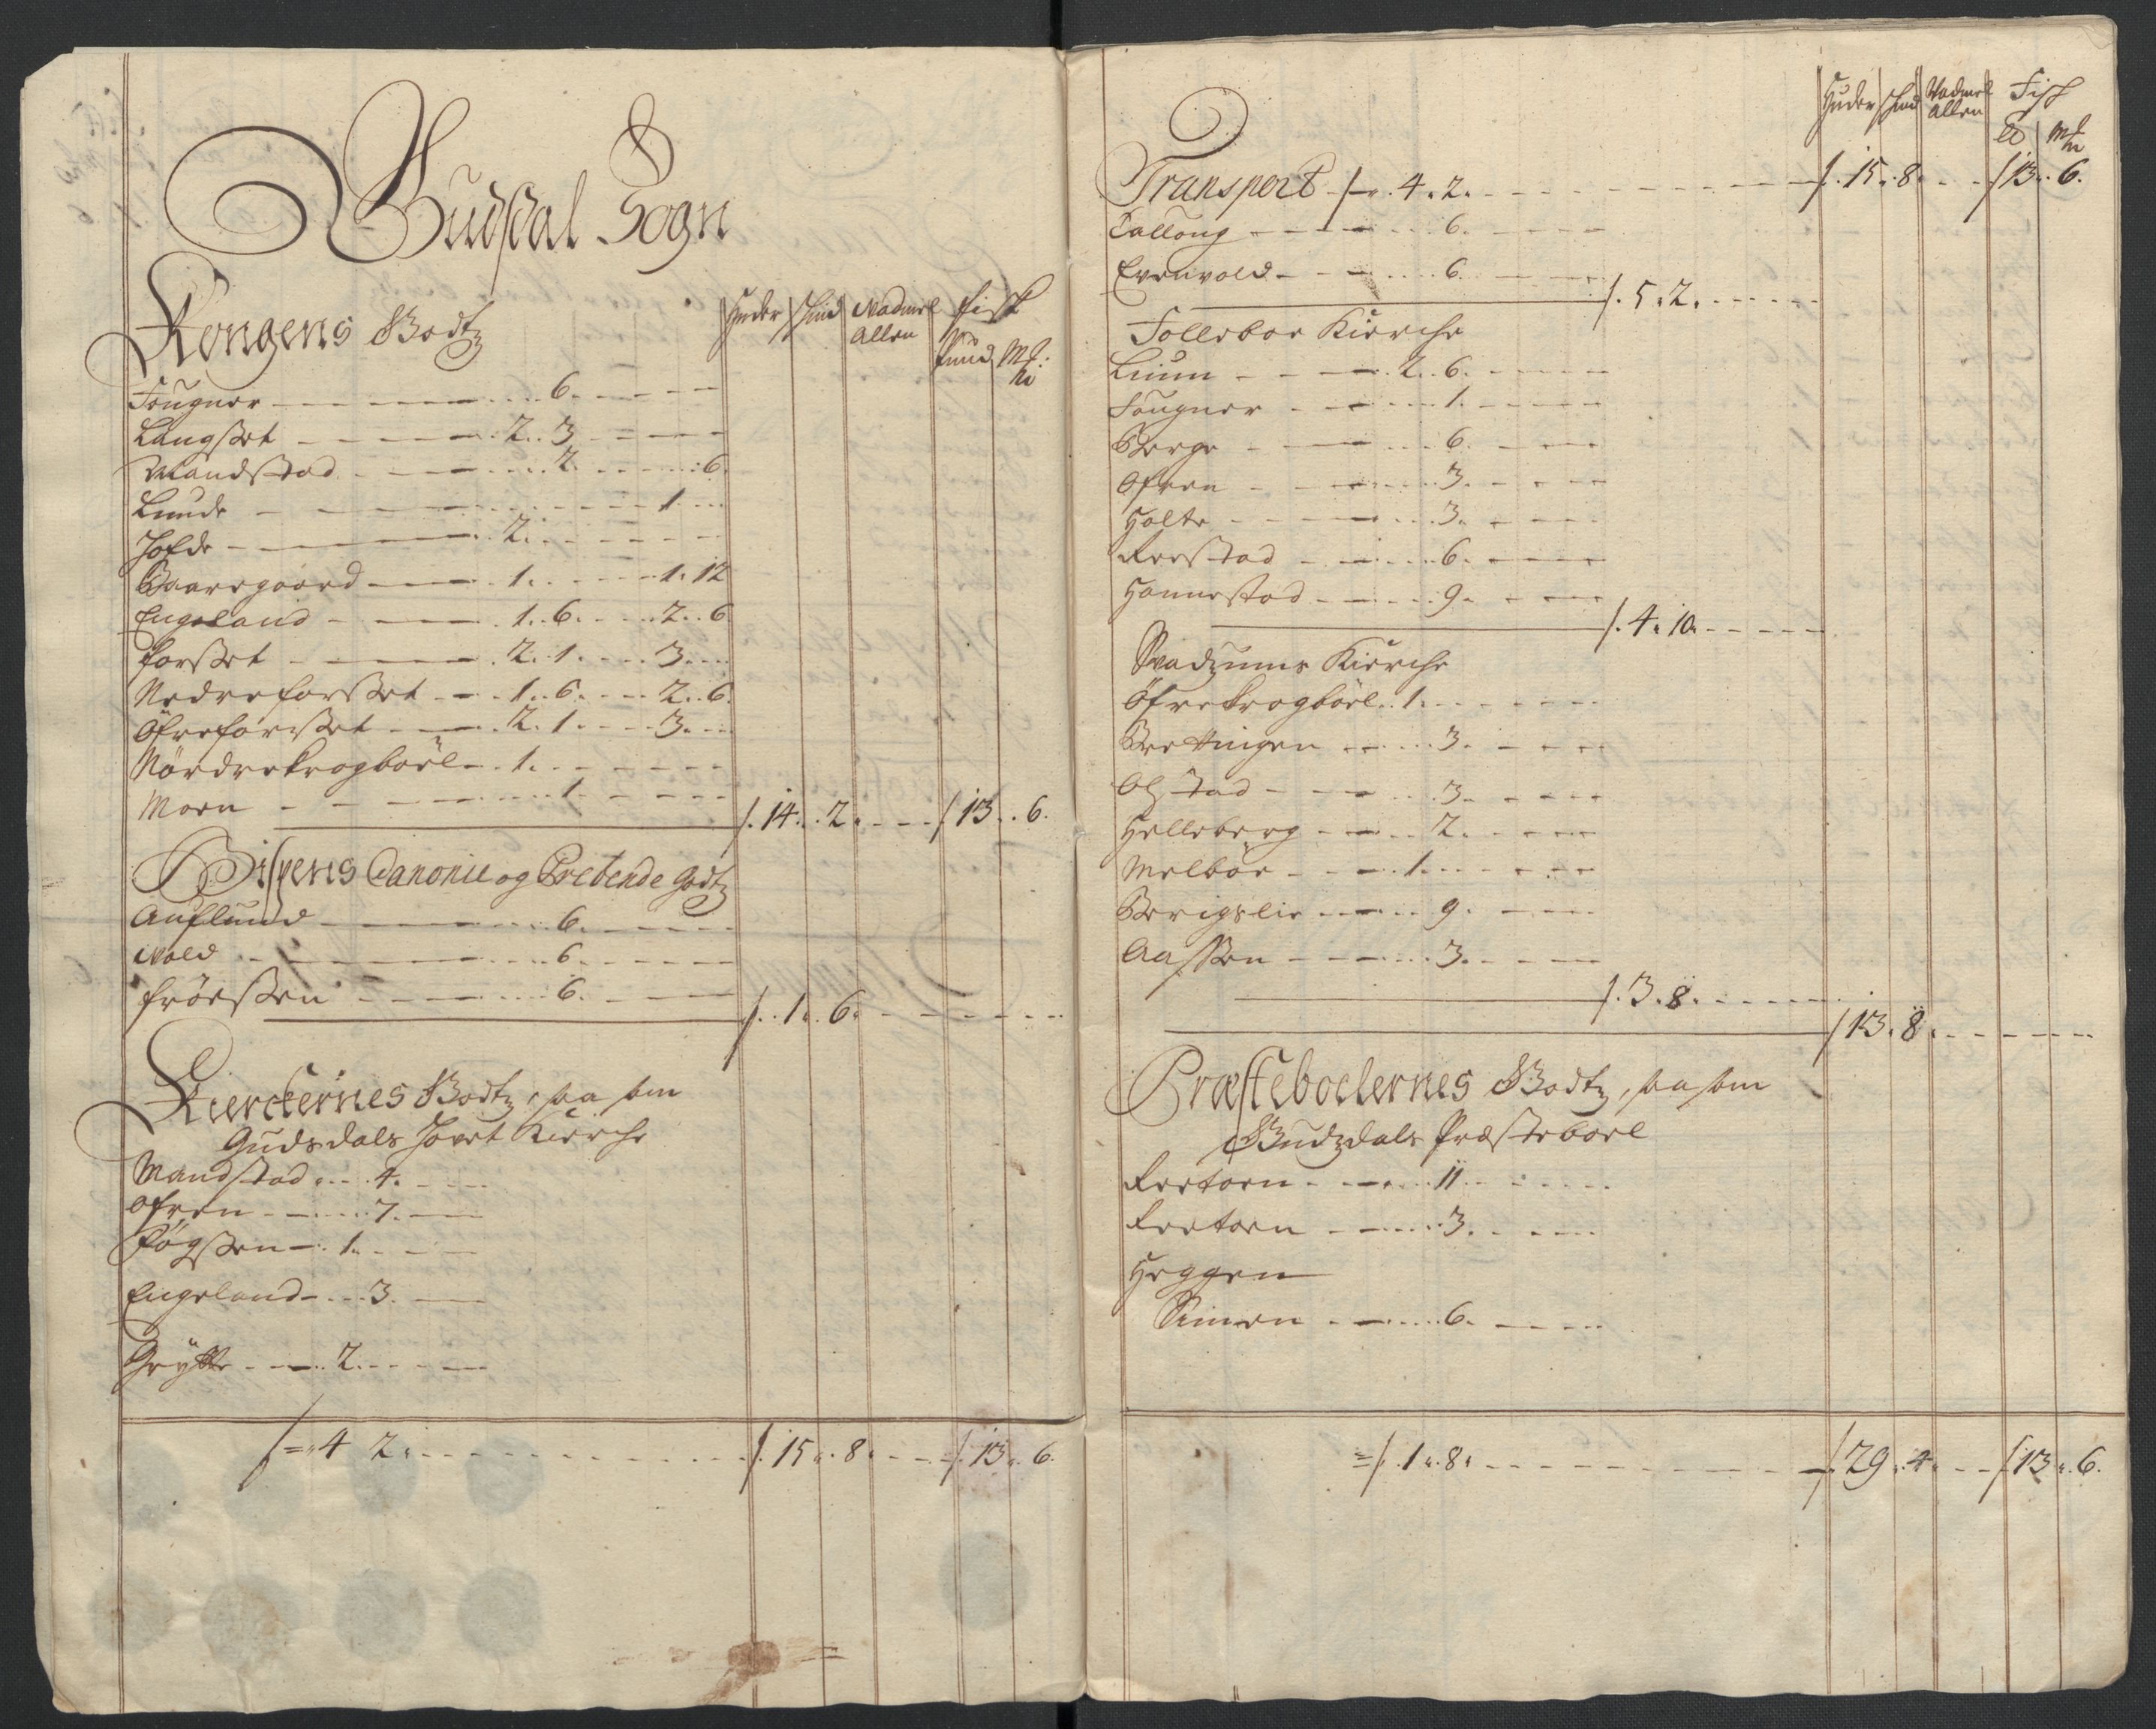 Gudsdal Sogn
Kongens Godtz
Huder Skind Wadmel Allen Fisk
Pund Mk:
Fougner 6.
Langset 2. 3
Mandstad 2. 6.
Lunde 1
Jofde 2.
Baaregaard 1. 1. 12
Engeland 1. 6. 2. 6
Forset 2. 1. 3.
Nedreforset 1. 6. 2. 6.
Öfreforset 2. 1. 3.
Nördrekrogböel 1.
Moen 1. 14. 2. 13. 6.
Bispens Canonie og Prebende Godtz
Auflund 6.
Vold 6.
Fröessen 6. 1. 6.
Kierckernes Godtz, saa som
Gudsdals Hovet Kierche
Mandstad 4.
Ofren 7.
Föigsen 1.
Engeland 3.
Grytte 2.
4 2. 15. 8. 13. 6.
Huder Skind Wadmel Allen Fisk
Mk
Transport 4. 2. 15. 8. 13. 6.
Tallong 6.
Evenvold 6.
5. 2.
Folleboe Kierche
Lium 2. 6.
Fougner 1.
Berge 6.
Ofren 3.
Holte 3.
Reistad 6.
Hannestad 9.
4. 10.
Svadzums Kierche
Öfrekrogböel 1.
Brettingen 3.
Olstad 3.
Helleberg 2.
Melböe 1.
Berigslie 9.
Aassen 3.
3. 8.
13. 8.
Præsteboelernes Godtz, saa som
Gudzdals Præsteboel
Rertoen 11
Rertoen 3.
Heggen
Simen 6.
1. 8. 29. 4. 13. 6.